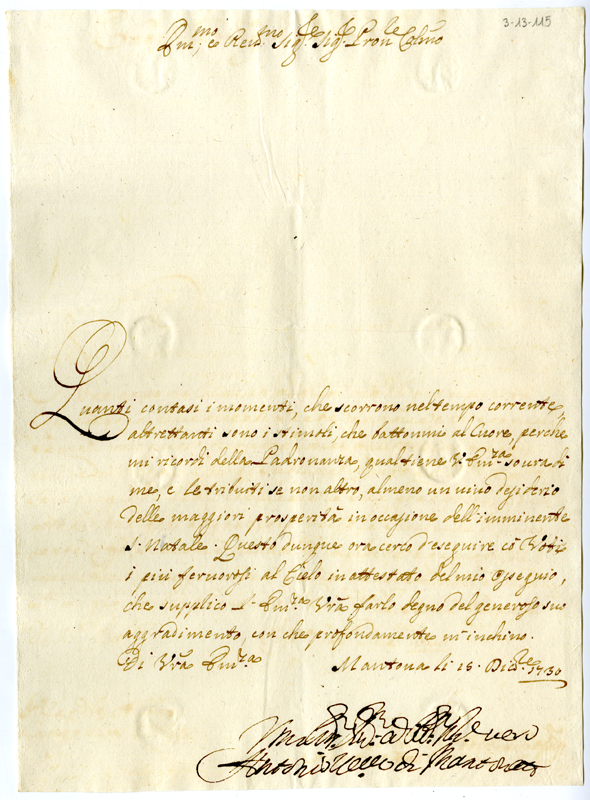 3-13-115
Em.mo e Rev.mo Sig.re Sig.re Pron.le Col.mo
Quanti contasi i momenti, che scorrono nel tempo corrente,
altrettanti sono i stimoli, che battonmi al Cuore, perche
mi ricordi della Padronanza, qual tiene V. Em.za soura di
me, e le tributi se non altro, almeno un vivo desiderio
delle maggiori prosperità in occasione dell'imminente
S. Natale. Questo dunque ora cerco d'eseguire cõ Voti
i piu feruorosi al Cielo in attestato del mio Ossequio,
che supplico l'Em.za Vrã farlo degno del generoso suo
aggradimento, con che profondamente m'inchino.
Di Vrã Em.za Mantova li 15. Dic.re 1730
Antonio Vesc.o di Mantova